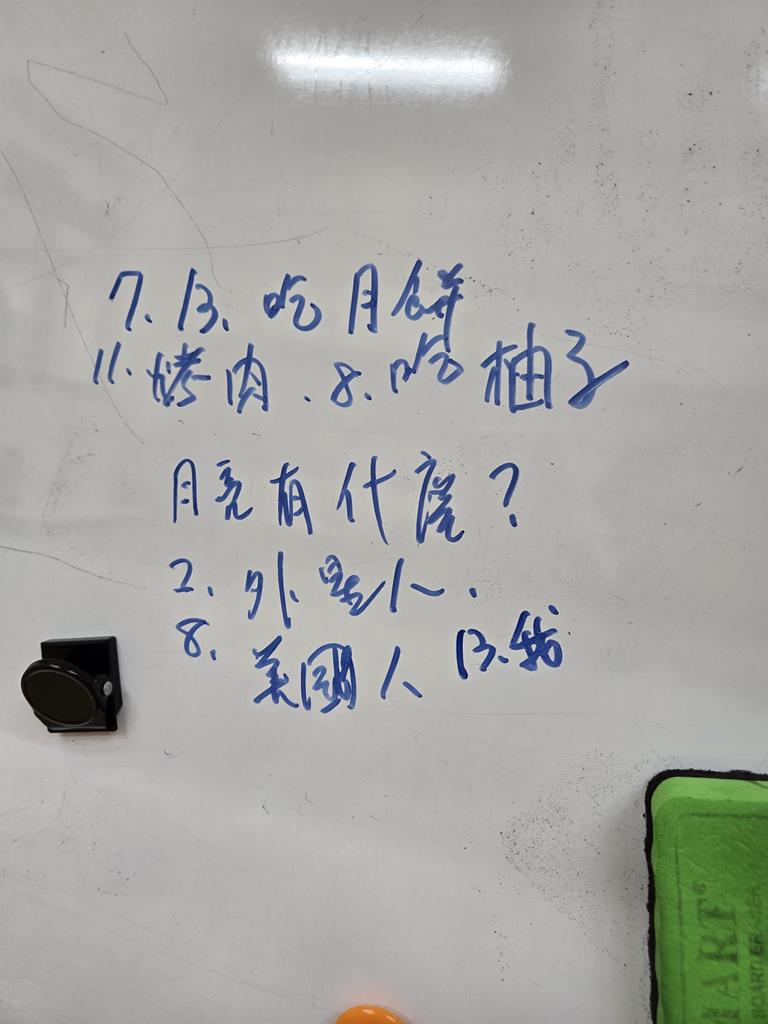 7. 13. 吃月餅
11. 烤肉. 8. 吃柚子
月亮有什麼？
2. 外星人.
8. 美國人 13.
ART®
BOARD ERASER